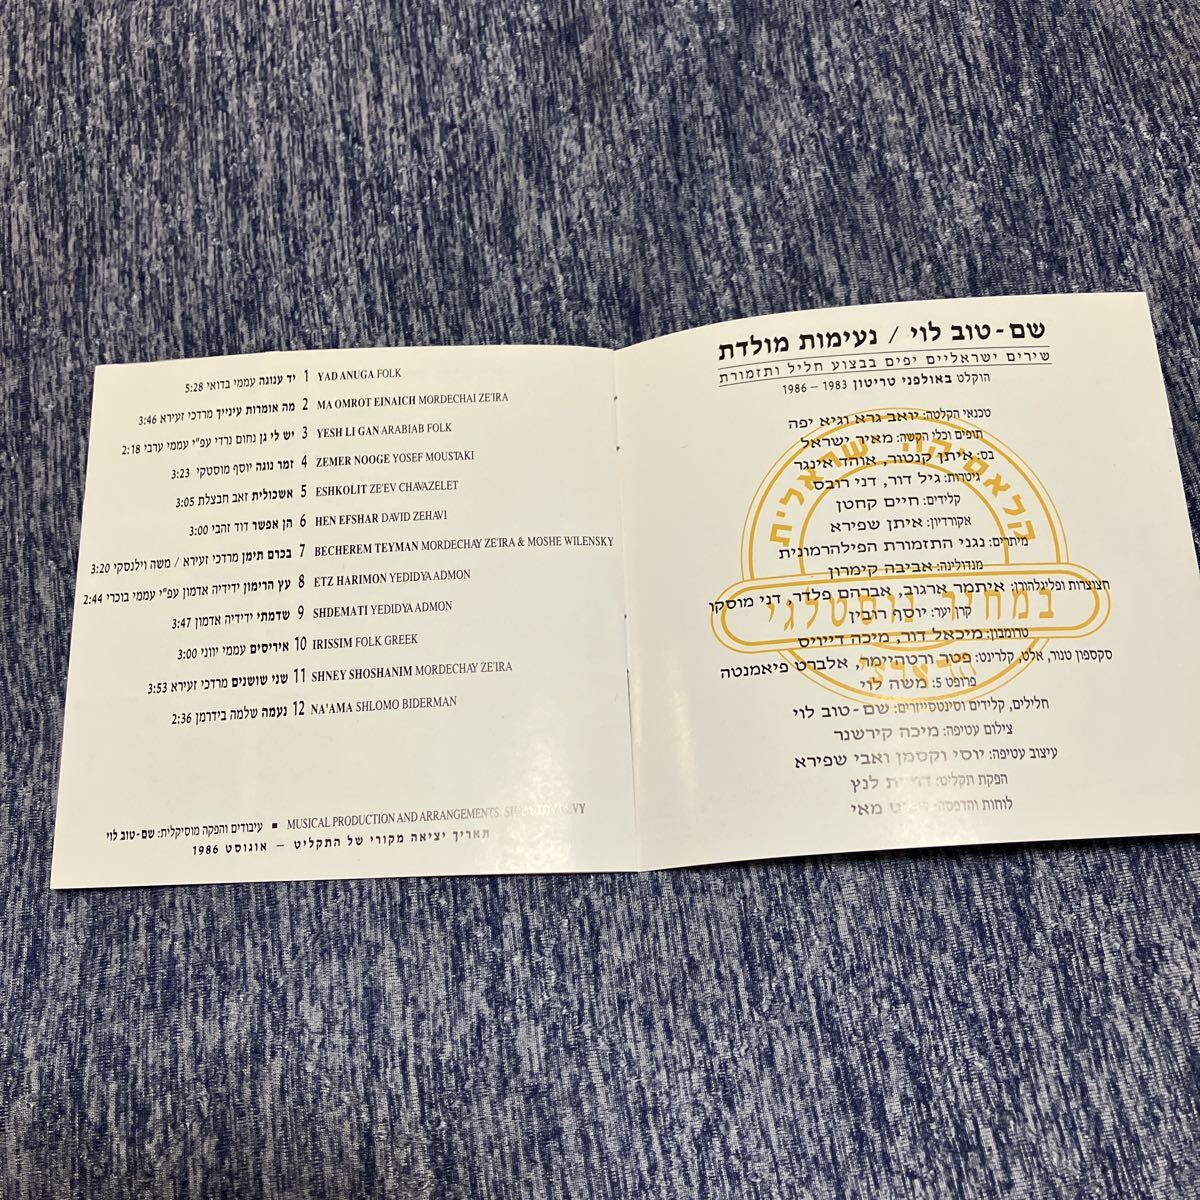 5:28 יד ענוגה עממי בדואי 1 YAD ANUGA FOLK
3:46 מה אומרות עינייך מרדכי זעירא 2 MA OMROT EINAICH MORDECHAI ZE'IRA
2:18 יש לי גן נחום נרדי עפ"י עממי ערבי 3 YESH LI GAN ARABIAB FOLK
3:23 זמר נוגה יוסף מוסטקי 4 ZEMER NOOGE YOSEF MOUSTAKI
3:05 אשכולית זאב חבצלת 5 ESHKOLIT ZE'EV CHAVAZELET
3:00 הן אפשר דוד זהבי 6 HEN EFSHAR DAVID ZEHAVI
3:20 בכרם תימן מרדכי זעירא / משה וילנסקי 7 BECHEREM TEYMAN MORDECHAY ZE'IRA & MOSHE WILENSKY
2:44 עץ הרימון ידידיה אדמון עפ"י עממי בוכרי 8 ETZ HARIMON YEDIDYA ADMON
3:47 שדמתי ידידיה אדמון 9 SHDEMATI YEDIDYA ADMON
3:00 איריסים עממי יווני 10 IRISSIM FOLK GREEK
3:53 שני שושנים מרדכי זעירא 11 SHNEY SHOSHANIM MORDECHAY ZE'IRA
2:36 נעמה שלמה בידרמן 12 NA'AMA SHLOMO BIDERMAN
עיבודים והפקה מוסיקלית: שם-טוב לוי ■ MUSICAL PRODUCTION AND ARRANGEMENTS: LEVY
תאריך יציאה מקורי של התקליט – אוגוסט 1986
שם-טוב לוי / נעימות מולדת
שירים ישראליים יפים בבצוע חליל ותזמורת
הוקלט באולפני טריטון 1983 – 1986
טכנאי הקלטה: יואב גרא וגיא יפה
תופים וכלי הקשה: מאיר ישראל
בס: איתן קנטור, אוהד אינגר
גיטרות: גיל דור, דני רובס
קלידים: חיים קחטן
אקורדיון: איתן שפירא
מיתרים: נגני התזמורת הפילהרמונית
מנדולינה: אביבה קימרון
חצוצרות ופליגלהורן: איתמר ארגוב, אברהם פלדר, דני מוסקו
קרן יער: יוסף רובין
טרומבון: מיכאל דור, מיכה דייויס
סקספון טנור, אלט, קלרינט: פטר ורטהיימר, אלברט פיאמנטה
פרופט 5: משה לוי
חלילים, קלידים וסינטסייזרים: שם-טוב לוי
צילום עטיפה: מיכה קירשנר
עיצוב עטיפה: יוסי וקסמן ואבי שפירא
הפקת תקליט: לנץ
לוחות והדפסה: מאי
במחיר נוסטלגי